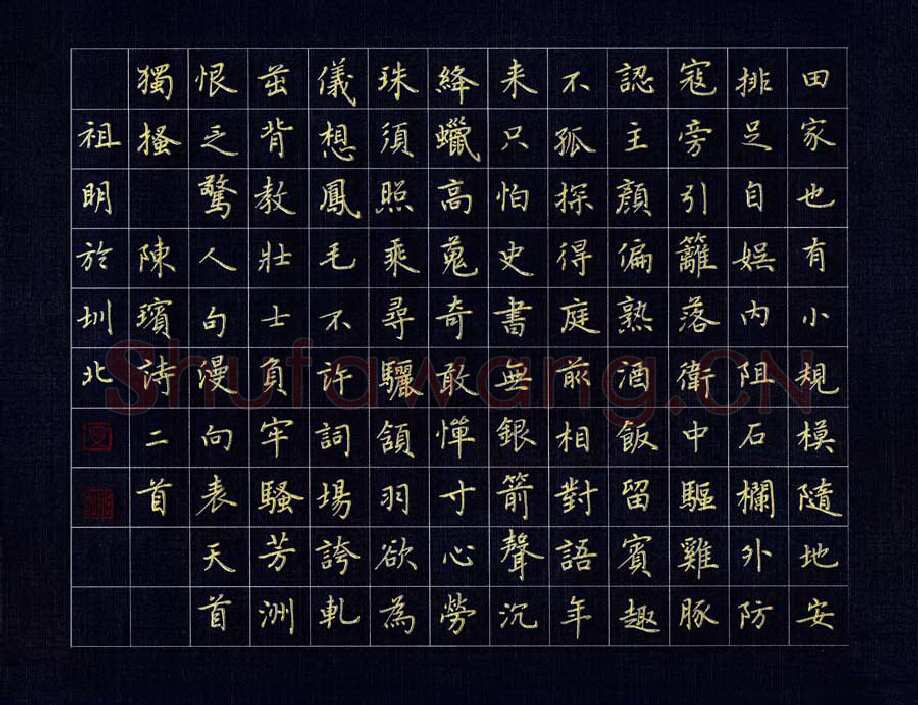 田家也有小規模隨地安
排足自娛內阻石欄外防
寇旁引籬落衛中驅雞豚
認主顏偏熟酒飯留賓趣
不孤探得庭前相對語年
来只怕史書無銀箭聲沉
絳蠟高蒐奇敢憚寸心勞
珠須照乘尋驪頷羽欲為
儀想鳳毛不許詞場誇軋
茁背教壯士負牢騷芳洲
恨乏驚人句漫向表天首
獨搔 陳璸詩二首
祖明於圳北
Shufawang.CN